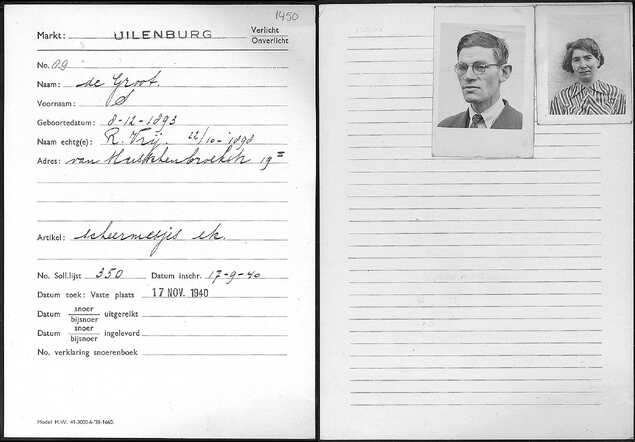 1450
Markt: UILENBURG Verlicht
Onverlicht
No. 09
Naam: de Groot.
Voornaam: S
Geboortedatum: 8-12-1893
Naam echtg(e): R. Vrij. 22/10-1898
Adres: van 19 II
Artikel: scheermesjes ek.
No. Soll.lijst 350 Datum inschr. 17-9-40
Datum toek: Vaste plaats 17 NOV. 1940
Datum snoer
bijsnoer uitgereikt
Datum snoer
bijsnoer ingeleverd
No. verklaring snoerenboek
Model M.W. 41-3000-6-'38-1660.